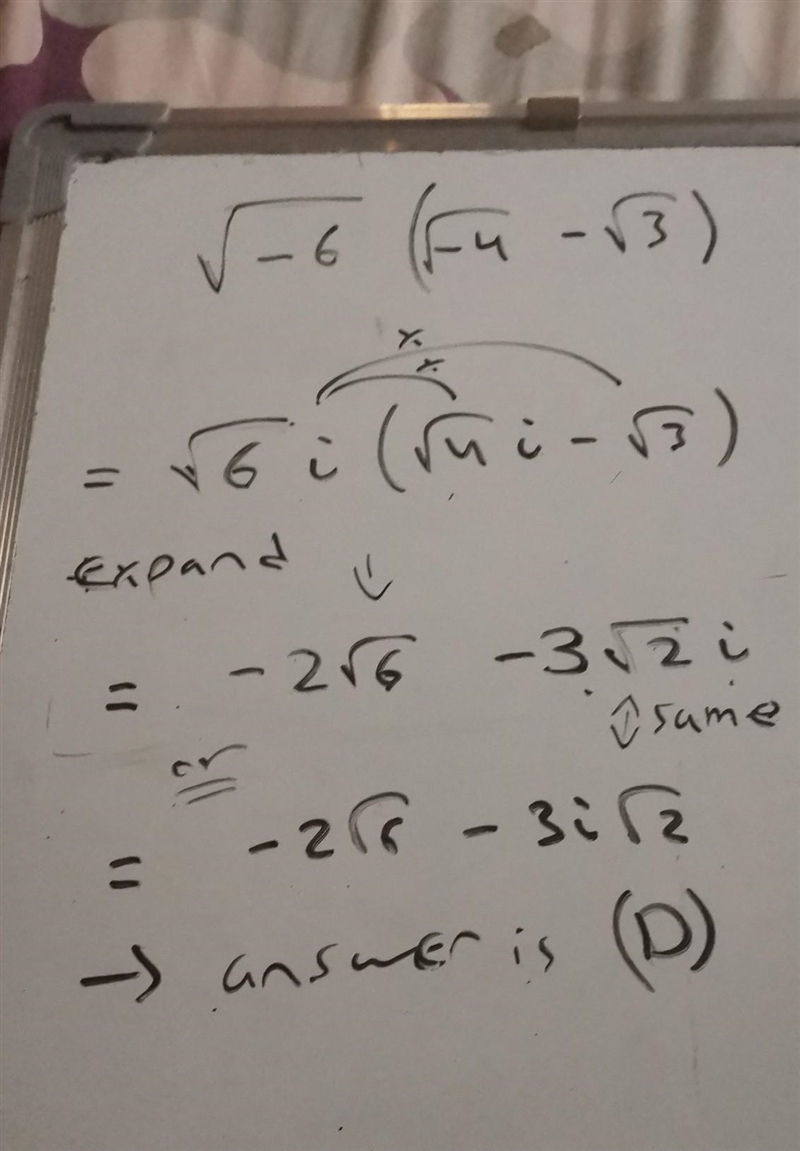 √-6 (√-4 - √3)
x
x
= √6 i (√4 i - √3)
expand ↓
= -2√6 -3√2 i
↕ same
or
= -2√6 - 3i√2
→ answer is (D)